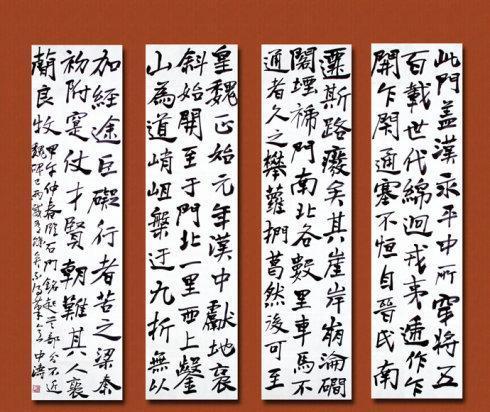 此門蓋漢永平中所穿將五
百載世代綿迴戎夷遞作乍
開乍閉通塞不恒自晉氏南
遷斯路廢矣其崖岸崩淪磵
閣堙褫門南北各數里車馬不
通者久之攀蘿捫葛然後可至
皇魏正始元年漢中獻地褒
斜始開至于門北一里西上鑿
山為道峭岨槃迂九折無以
加經途巨礙行者苦之梁秦
初附寔仗才賢朝難其人褒
蕑良牧 甲午仲春 石門銘
魏碑